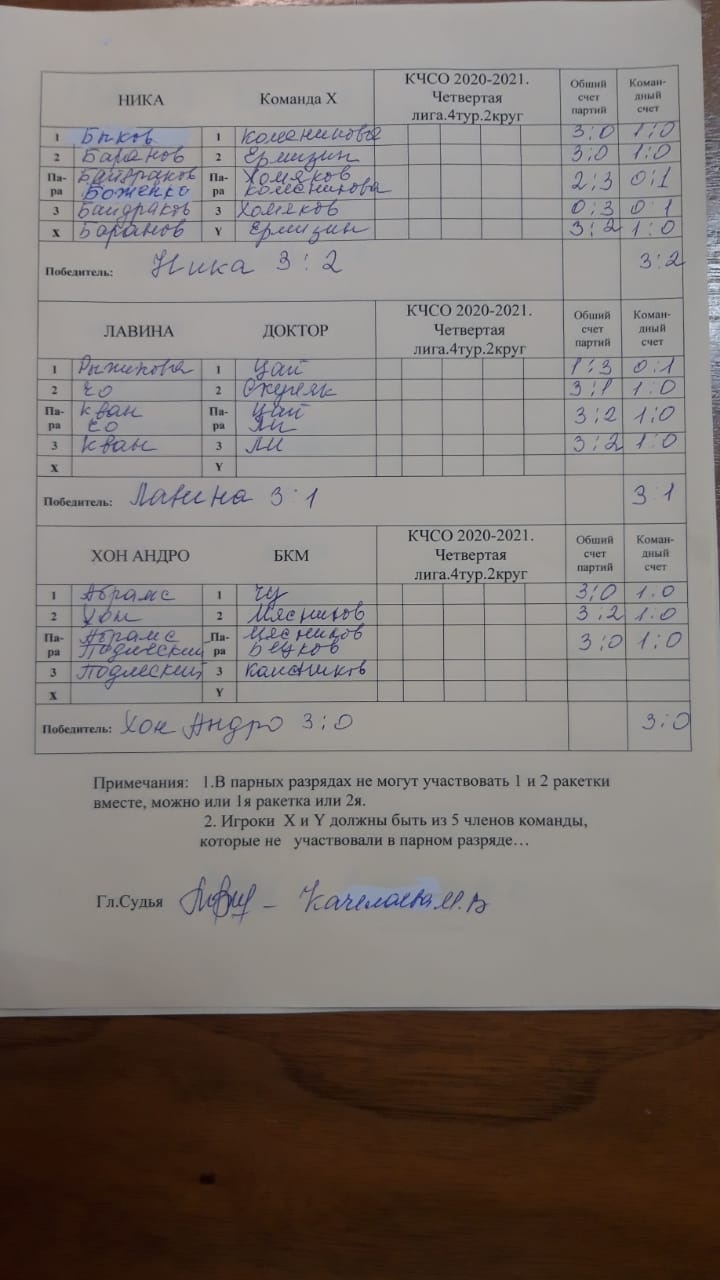 НИКА Команда Х КЧСО 2020-2021. Четвертая лига.4тур.2круг Общий счет партий Коман-дный счет
1 Быков 1 3:0 1:0
2 Баранов 2 Ермизин 3:0 1:0
Па-ра Байдраков Боженко Па-ра Хомяков Колесникова 2:3 0:1
3 Байдраков 3 Хомяков 0:3 0:1
Х Баранов Y Ермизин 3:2 1:0
Победитель: Ника 3:2 3:2
ЛАВИНА ДОКТОР КЧСО 2020-2021. Четвертая лига.4тур.2круг Общий счет партий Коман-дный счет
1 Рыжикова 1 Цай 1:3 0:1
2 Чо 2 3:1 1:0
Па-ра Кван Чо Па-ра Цай Ли 3:2 1:0
3 Кван 3 Ли 3:2 1:0
Х Y
Победитель: Лавина 3:1 3:1
ХОН АНДРО БКМ КЧСО 2020-2021. Четвертая лига.4тур.2круг Общий счет партий Коман-дный счет
1 Абрамс 1 Чу 3:0 1:0
2 Хон 2 Мясников 3:2 1:0
Па-ра Абрамс Подлеский Па-ра Мясников 3:0 1:0
3 Подлеский 3
Х Y
Победитель: Хон Андро 3:0 3:0
Примечания: 1.В парных разрядах не могут участвовать 1 и 2 ракетки
вместе, можно или 1я ракетка или 2я.
2. Игроки Х и Y должны быть из 5 членов команды,
которые не участвовали в парном разряде…
Гл.Судья